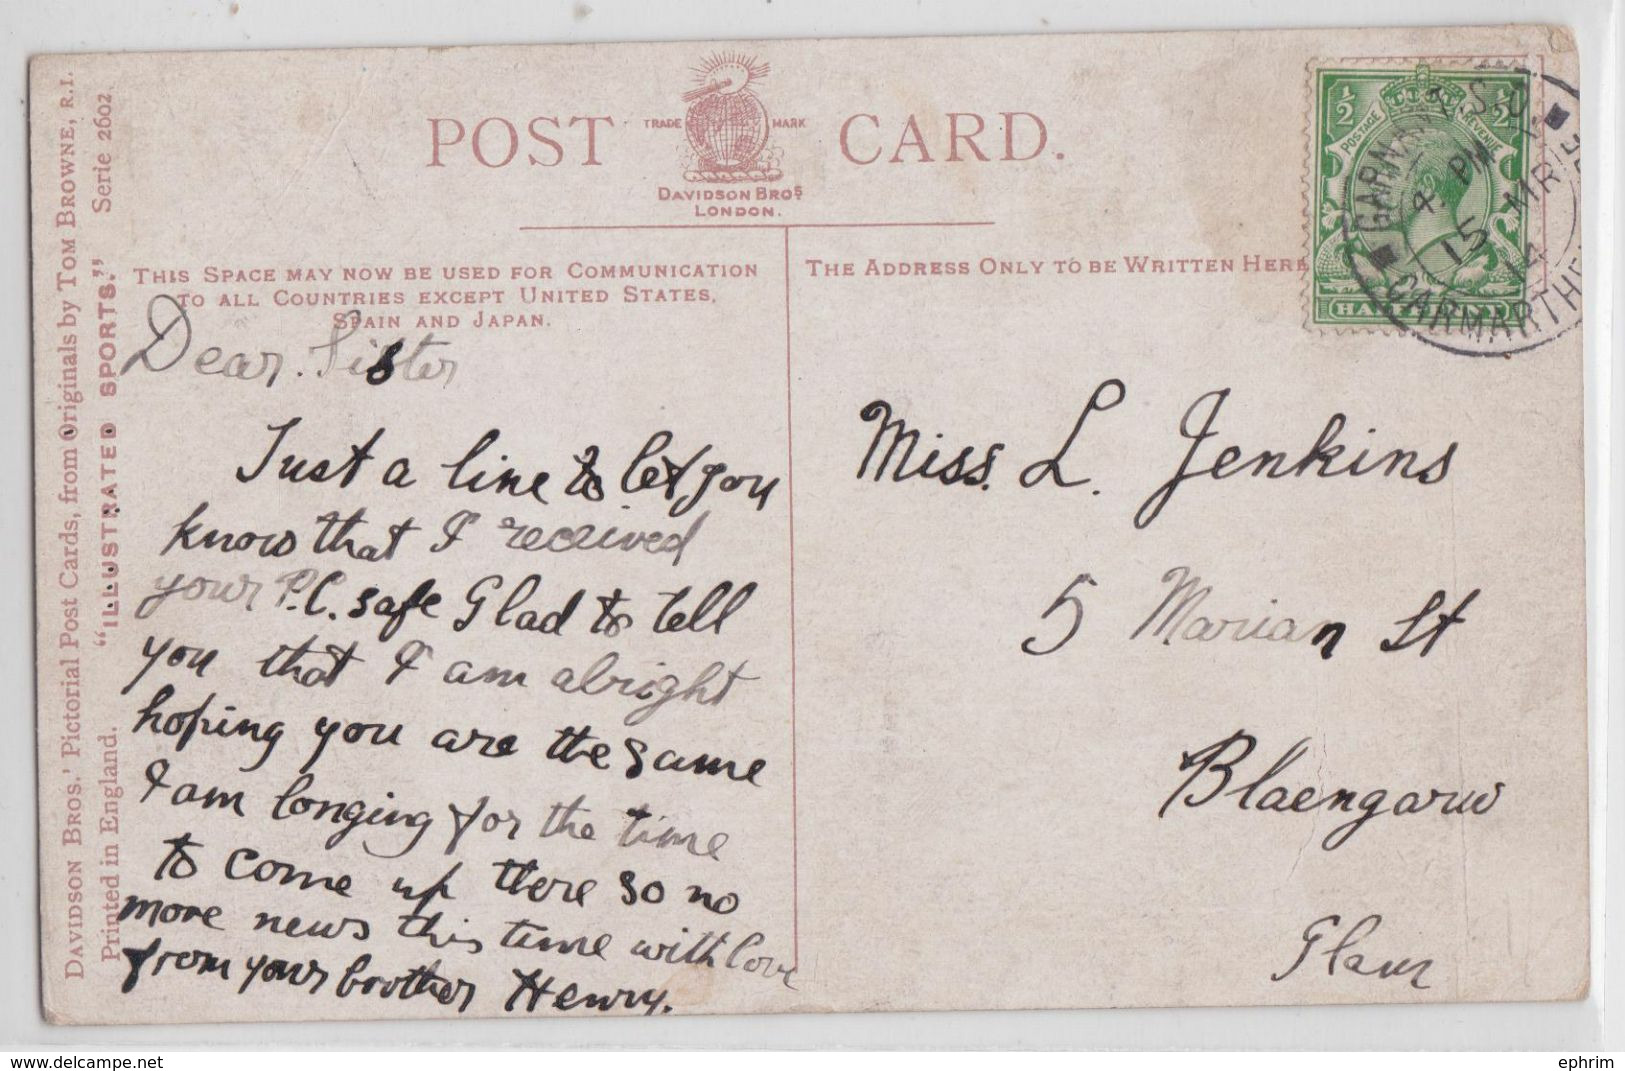 POST CARD.
TRADE MARK
DAVIDSON BROS.
LONDON.
DAVIDSON BROS.' Pictorial Post Cards, from Originals by TOM BROWNE, R.I.
Printed in England. "ILLUSTRATED SPORTS." Serie 2602
THIS SPACE MAY NOW BE USED FOR COMMUNICATION
TO ALL COUNTRIES EXCEPT UNITED STATES,
SPAIN AND JAPAN.
THE ADDRESS ONLY TO BE WRITTEN HERE
½ ½
POSTAGE REVENUE
S.O
4 PM
15 MR
14
CARMARTHE
Dear Sister
Just a line to let you
know that I received
your P.C. safe Glad to tell
you that I am alright
hoping you are the same
I am longing for the time
to come up there so no
more news this time with love
from your brother Henry.
Miss. L. Jenkins
5 Marian St
Blaengarw
Glam
www.delcampe.net
ephrim